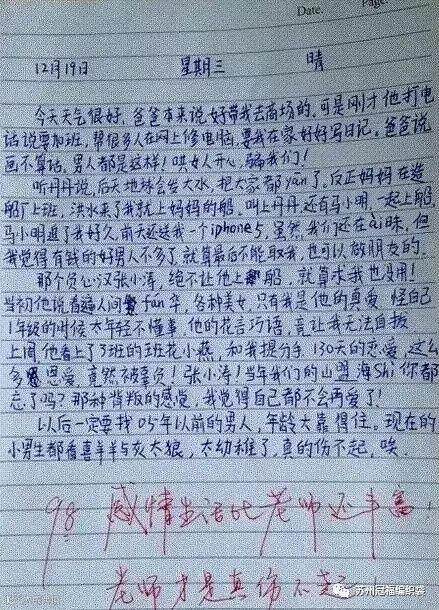 Date.
Page.
12月19日 星期三 晴
今天天气很好，爸爸本来说好带我去商场的，可是刚才他打电
话说要加班，帮很多人在网上修电脑，要我在家好好写日记。爸爸说
画不算话，男人都是这样！哄女人开心，骗我们！
听丹丹说，后天地球会发大水，把大家都yān了。反正妈妈在造
船厂上班，洪水来了我就上妈妈的船。叫上丹丹还有马小明，一起上船，
马小明追了我好久，前天还送我一个iphone5，虽然我们还在ài昧，但
我觉得有钱的好男人不多了，就算最后不能取我，也可以做朋友的。
那个负心汉张小涛，绝不让他上船，就算求我也没用！
当初他说看遍人间fán华，各种美女，只有我是他的真爱 怪自己
1年级的时候太年轻不懂事，他的花言巧语，竟让我无法自拔
上周他看上了3班的班花小燕，和我提分手，130天的恋爱，这么
多恩爱，竟然被辜负！张小涛！当年我们的山盟海Shì你都
忘了吗？那种背叛的感觉，我觉得自己都不会再爱了！
以后一定要找05年以前的男人，年龄大靠得住。现在的
小男生都看喜羊羊与灰太狼，太幼稚了，真的伤不起，唉。
98 感情生活比老师还丰富！
老师才是真伤不起
苏州冠福编织袋